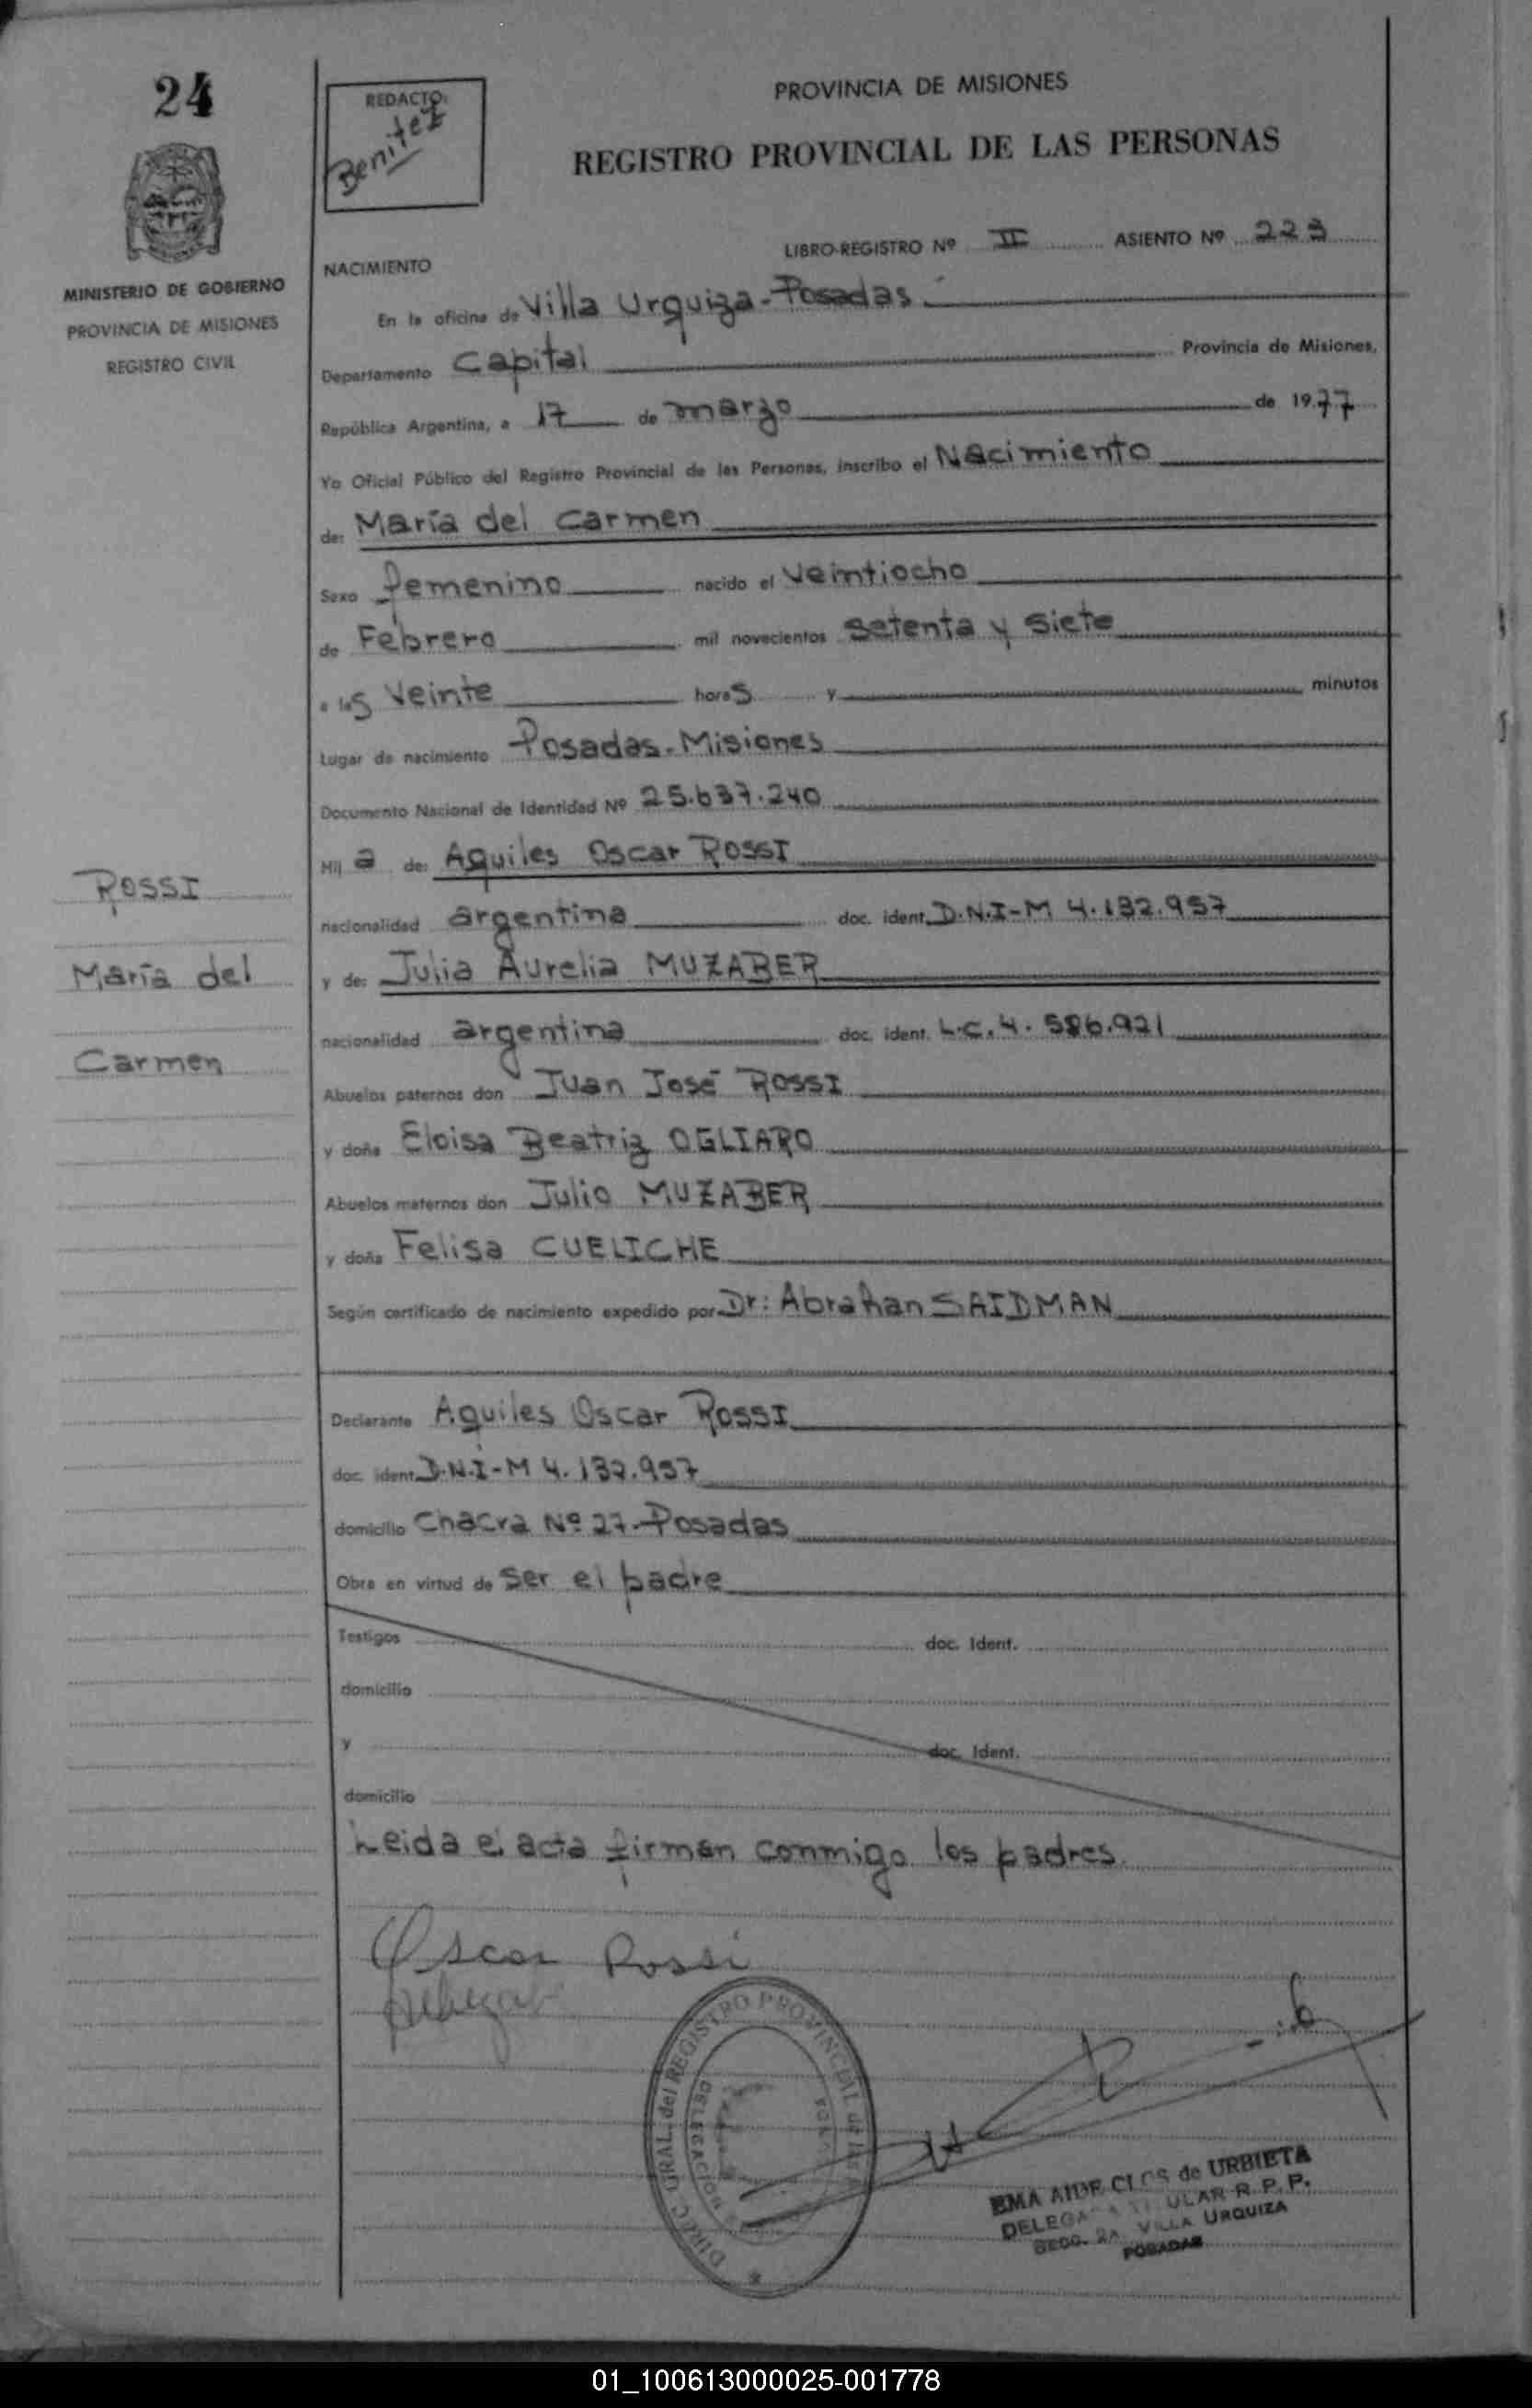 24
REDACTO:
Benitez
PROVINCIA DE MISIONES
REGISTRO PROVINCIAL DE LAS PERSONAS
MINISTERIO DE GOBIERNO
PROVINCIA DE MISIONES
REGISTRO CIVIL
LIBRO-REGISTRO Nº II ASIENTO Nº 223
NACIMIENTO
En la oficina de Villa Urquiza - Posadas
Departamento Capital Provincia de Misiones,
República Argentina, a 17 de marzo de 1977
Yo Oficial Público del Registro Provincial de las Personas, inscribo el Nacimiento
de: María del Carmen
Sexo femenino nacido el veintiocho
de Febrero mil novecientos setenta y siete
a las veinte horas y minutos
Lugar de nacimiento Posadas - Misiones
Documento Nacional de Identidad Nº 25.637.240
Hija de: Aquiles Oscar ROSSI
nacionalidad argentina doc. ident. D.N.I-M 4.132.957
y de: Julia Aurelia MUZABER
nacionalidad argentina doc. ident. L.C. 4.586.921
Abuelos paternos don Juan José ROSSI
y doña Eloisa Beatriz OGLIARO
Abuelos maternos don Julio MUZABER
y doña Felisa CUELICHE
Según certificado de nacimiento expedido por Dr: Abrahan SAIDMAN
ROSSI
María del
Carmen
Declarante Aquiles Oscar ROSSI
doc. ident. D.N.I-M 4.132.957
domicilio Chacra Nº 27-Posadas
Obra en virtud de ser el padre
Testigos doc. Ident.
domicilio
y doc. Ident.
domicilio
Leida el acta firman conmigo los padres.
Oscar Rossi
DIREC. GRAL. del REGISTRO PROVINCIAL de las
EMA AIDE CLOS de URBIETA
DELEGADA TITULAR R. P. P.
SECC. 2A. VILLA URQUIZA
POSADAS
01_100613000025-001778